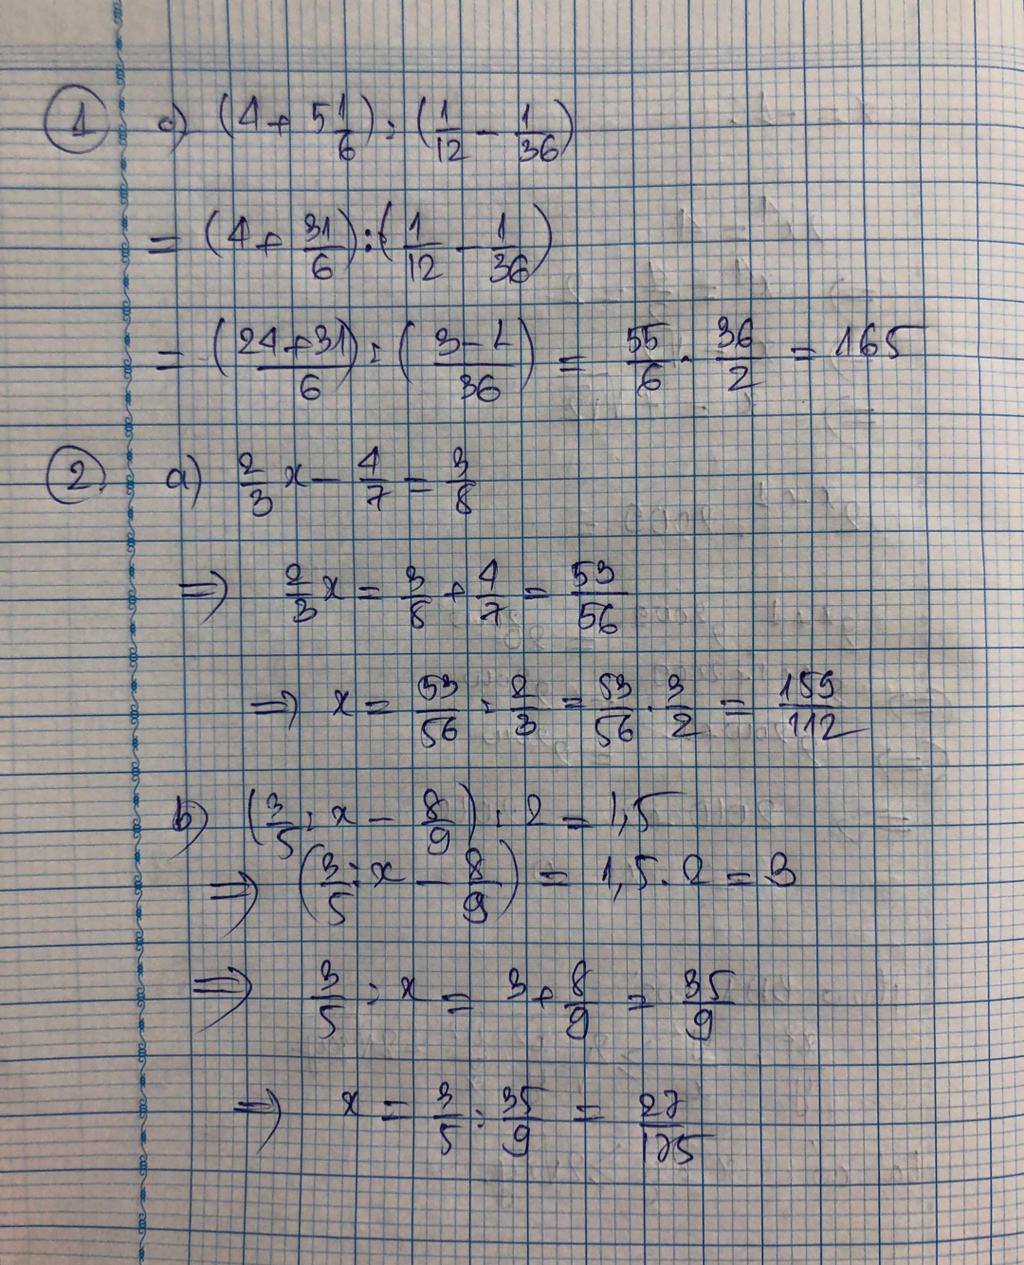 1 a) (4 + 5 1/6) : (1/12 − 1/36)
= (4 + 31/6) : (1/12 − 1/36)
= ((24+31)/6) : ((3−1)/36) = 55/6 · 36/2 = 165
2. a) 2/3 x − 4/7 = 3/8
⇒ 2/3 x = 3/8 + 4/7 = 53/56
⇒ x = 53/56 : 2/3 = 53/56 · 3/2 = 159/112
b) (3/5 : x − 8/9) : 2 = 1,5
⇒ (3/5 : x − 8/9) = 1,5 . 2 = 3
⇒ 3/5 : x = 3 + 8/9 = 35/9
⇒ x = 3/5 : 35/9 = 27/175